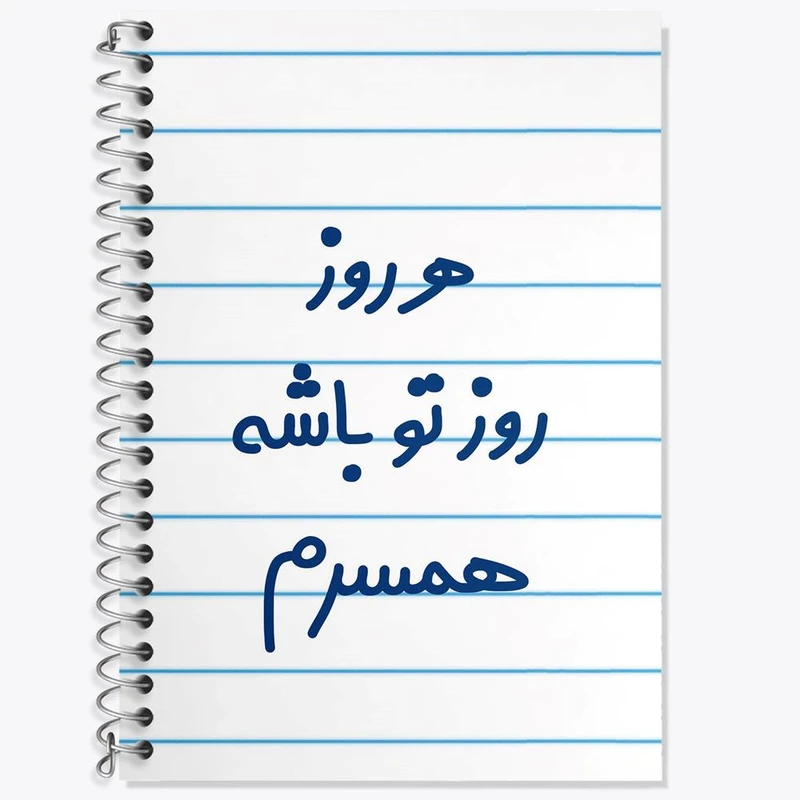 هر روز
روز تو باشه
همسرم